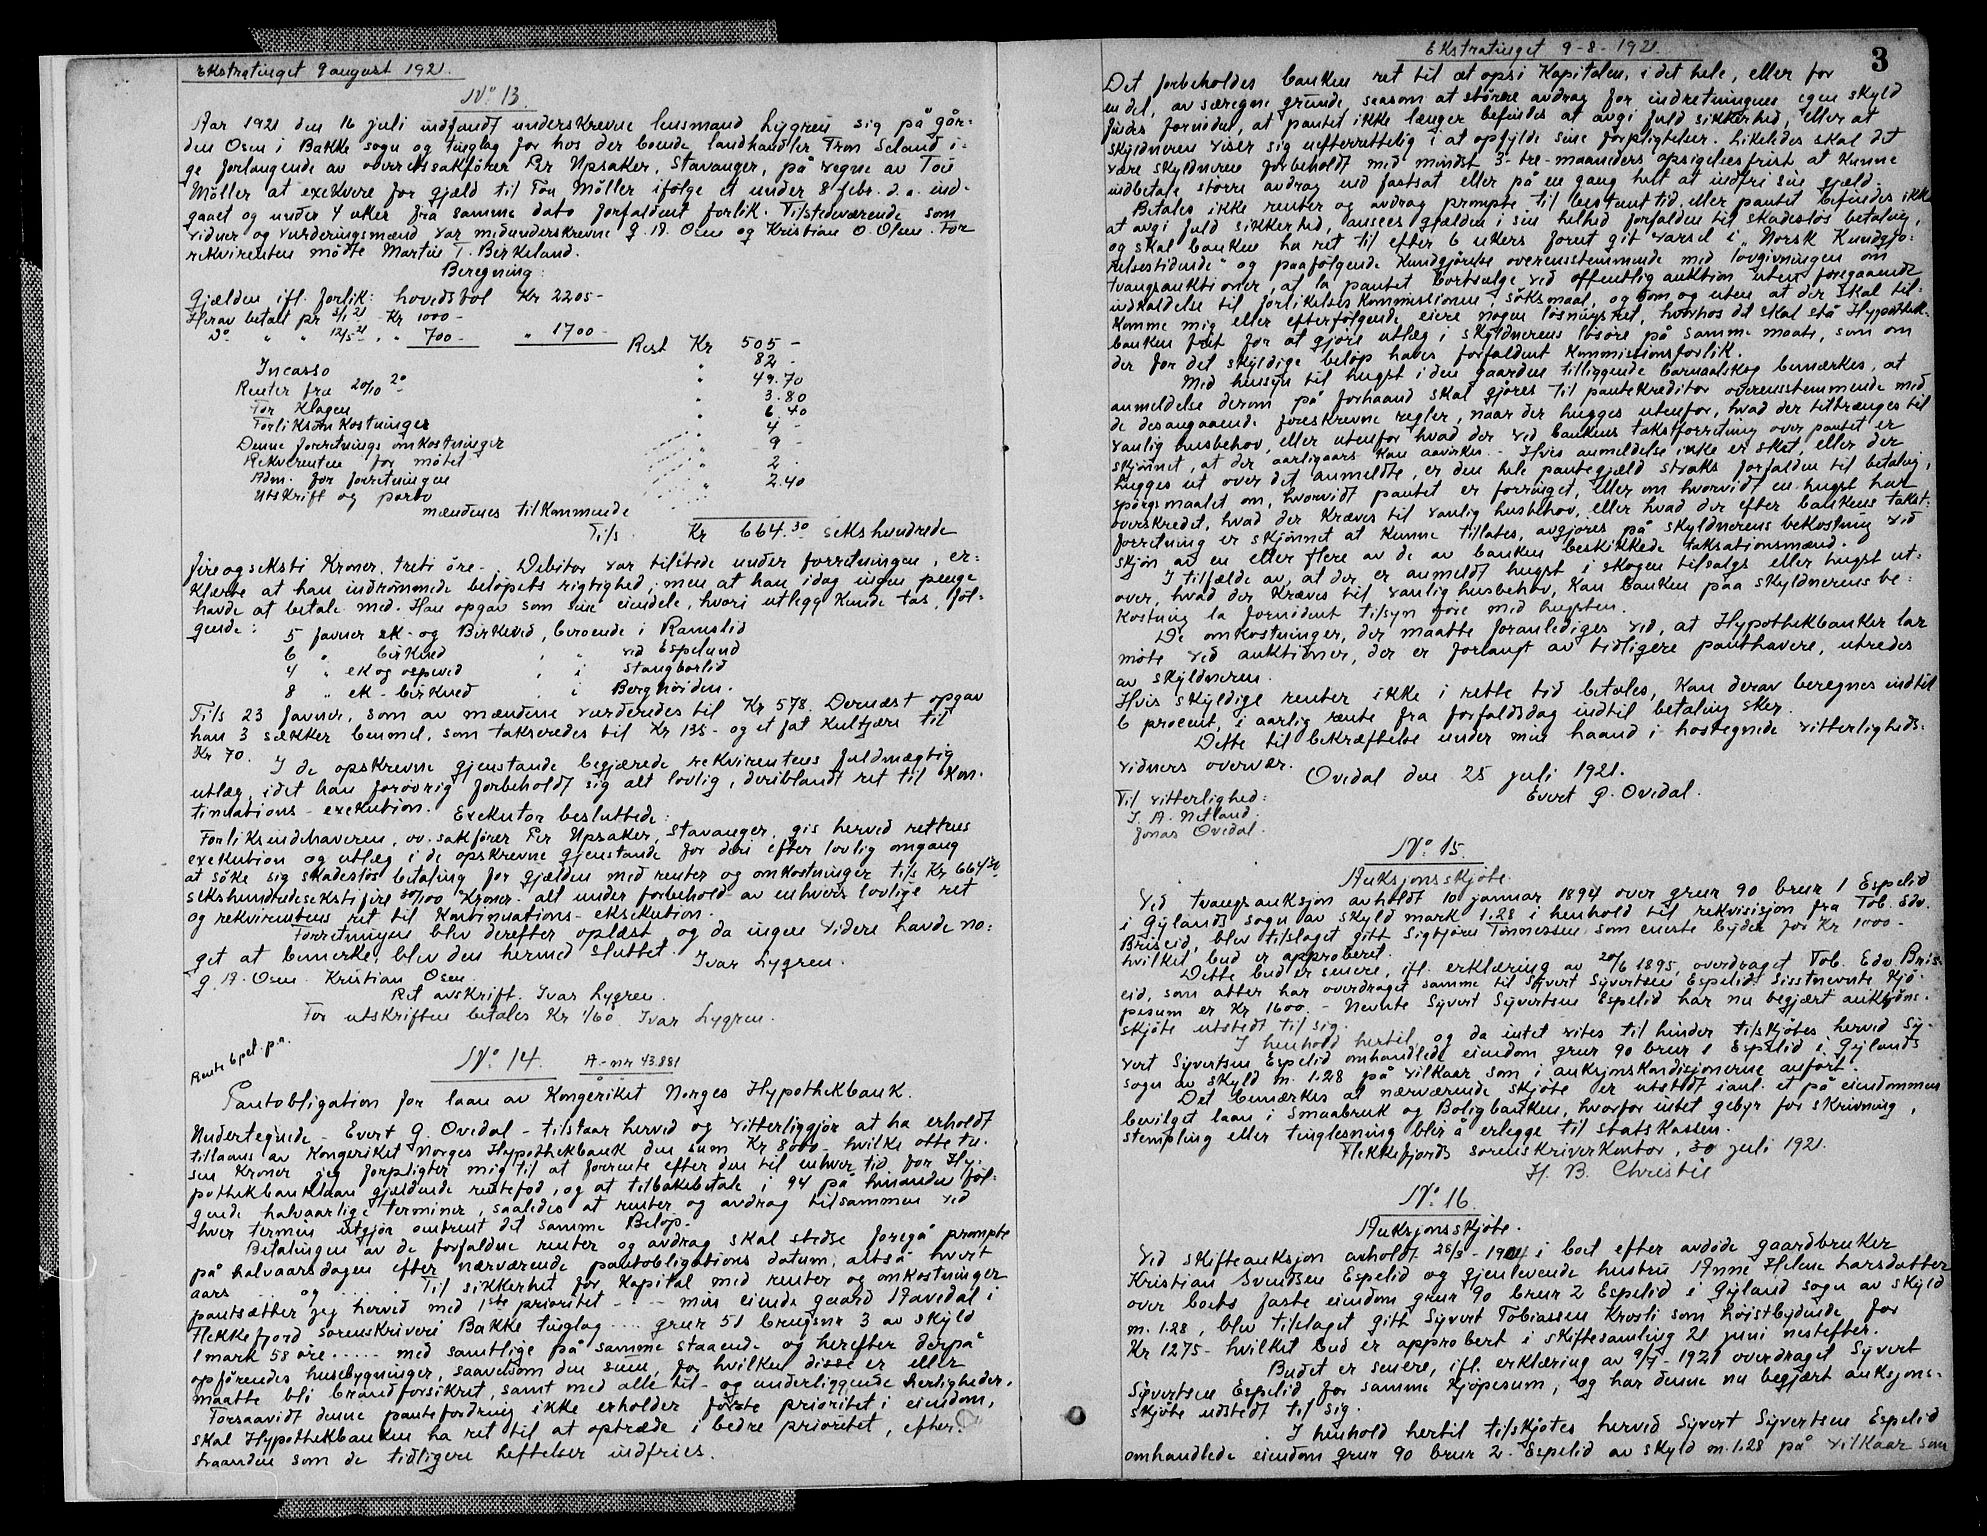 Ekstratinget 9 august 1921.
No 13.
Aar 1921 den 16 juli indfandt underskrevne lensmand Lygren sig på går-
den Osen i Bakke sogn og tinglag for hos der boende landhandler Tron Seland i-
ge forlangende av overretssakfører Per Upsaker, Stavanger, på vegne av Tou
Möller at exekvere for gjæld til Tou Möller ifølge et under 8 febr. d. a. ind-
gaaet og under 4 uker fra samme dato forfaldent forlik. Tilstedeværende som
vidner og vurderingsmænd var medunderskrevne G. A. Osen og Kristian O. Osen. For
rekvirenten mötte Martin T. Birkeland.
Beregning:
Gjælden ifl. forlik: hovedstol Kr 2205-
Herav betalt pr 3/1 21 - Kr 1000-
Do " " 12/5 21 " " 700- " 1700-
Rest Kr 505-
Incasso " 82-
Renter fra 20/10 20 " 49.70
For Klagen " 3.80
Forliksomkostninger " 6.40
Denne forretnings omkostninger " 4-
Rekvirenten for mötet " 9-
Adm. for forretningen " 2-
Utskrift og porto " 2.40
mændenes tilkommende
Tils. Kr 664.30 sekshundrede
fireogseksti Kroner, treti öre-. Debitor var tilstede under forretningen, er-
klærte at han indrömmede belöpets rigtighed, men at han idag ingen penge
havde at betale med. Han opgav som sine eiendele, hvori utlegg kunde tas, föl-
gende:
5 favner ek- og Birkeved, beroende i Ramslid
6 " birkeved " " ved Espelund
4 " ek og ospeved " i Stangborlid
8 " ek- birkeved " i Berghöiden.
Tils 23 favner, som av mændene vurderedes til Kr 578. Dernæst opgav
han 3 sækker benmel, som takseredes til Kr 135- og et fat Kultjære til
Kr 70.
I de opskrevne gjenstande begjærede rekvirentens fuldmægtig
utlæg, idet han forövrig forbeholdt sig alt lovlig, deriblandt ret til Kon-
tinuations- exekution. Exekutor besluttede:
Forliksindehaveren, ov. sakförer Per Upsaker, Stavanger, gis herved rettens
exekution og utlæg i de opskrevne gjenstande for deri efter lovlig omgang
at söke sig skadeslös betaling for gjælden med renter og omkostninger tils Kr 664.30
sekshundredesekstifire 30/100 Kroner- alt under forbehold av enhvers lovlige ret
og rekvirentens ret til Kontinuations- eksekution.
Forretningen blev derefter oplæst og da ingen videre havde no-
get at bemerke, blev den hermed sluttet. Ivar Lygren.
G. A. Osen Kristian Osen
Ret avskrift. Ivar Lygren.
For utskriften betales Kr 1/60 Ivar Lygren.
Rente 6 pct. p.a.
No 14. A-nr 43.881
Pantobligation for laan av Kongeriket Norges Hypothekbank.
Undertegnede - Evert G. Ovedal - tilstaar herved og vitterliggjør at ha erholdt
tillaans av Kongeriket Norges Hypothekbank den sum Kr 8000- hvilke otte tu-
sen Kroner jeg forpligter mig til at forrente efter den til enhver tid for Hy-
pothekbanklaan gjeldende rentefod, og at tilbakebetale i 94 på hinanden föl-
gende halvaarlige terminer, saaledes at renter og avdrag tilsammen ved
hver termin utgjör omtrent det samme Belöp.
Betalingen av de forfaldne renter og avdrag skal stedse foregå prompte
på halvaarsdagen efter nærværende pantobligations datum, altså hvert
aars ..... og ..... Til sikkerhet for Kapital med renter og omkostninger
pantsætter jeg herved med 1ste prioritet ---- min eiende gaard Aavedal i
Flekkefjord sorenskriveri Bakke tinglag .... gnr 51 brugsnr 3 av skyld
1 mark 58 öre ..... med samtlige på samme staaende og herefter derpå
opförendes husebygninger, saavelsom den sum, for hvilken disse er eller
maatte bli brandforsikret, samt med alle til- og underliggende herligheder.
Forsaavidt denne pantefordring ikke erholder förste prioritet i eiendom,
skal Hypothekbanken ha ret til at optræde i bedre prioritet, efter-
haanden som de tidligere heftelser indfries.
Ekstratinget 9-8-1921.
3
Det forbeholdes banken ret til at opsi Kapitalen, i det hele, eller for
en del, av særegne grunde, saasom at större avdrag for indretningens egen skyld
findes fornödent, at pantet ikke længer befindes at avgi fuld sikkerhed, eller at
skyldneren viser sig uefterrettelig i at opfylde sine forpligtelser. Likeledes skal det
være skyldneren forbeholdt med mindst 3-tre-maaneders opsigelsesfrist at kunne
indbetale större avdrag end fastsat eller på en gang helt at indfri sin gjæld.
Betales ikke renter og avdrag prompte til bestemt tid, eller pantet befindes ikke
at avgi fuld sikkerhed, ansees gjælden i sin helhed forfalden til skadeslös betaling,
og skal banken ha ret til efter 6 ukers forut git varsel i „Norsk Kundgjö-
relsestidende" og paafölgende Kundgjörelse overensstemmende med lovgivningen om
tvangsauktioner, at la pantet bortsælge ved offentlig auktion uten foregaaende
indkaldelse til forlikelseskommissionen, söksmaal, og dom og uten at der skal til-
komme mig eller efterfölgende eiere nogen lösningsret, hvorhos det skal stå Hypothek-
banken frit for at gjöre utlæg i skyldnerens lösöre på samme maate, som om
der for det skyldige belöp haves forfaldent Kommissionsforlik.
Med hensyn til hugst i den gaarden tilliggende barnaalskog bemærkes, at
anmeldelse derom på forhaand skal gjöres til pantekreditor overensstemmende med
de desangaaende foreskrevne regler, naar der hugges utenfor, hvad der tiltrænges til
vanlig husbehov, eller utenfor hvad der ved bankens takstforretning over pantet er
skjönnet, at der aarligaars kan aavirkes. - Hvis anmeldelse ikke er sket, eller der
hugges ut over det anmeldte, er den hele pantegjæld straks forfalden til betaling,
spörgsmaalet om, hvorvidt pantet er forringet, eller om hvorvidt en hugst har
overskredet, hvad der kræves til vanlig husbehov, eller hvad der efter bankens takst-
forretning er skjönnet at kunne tillates, avgjöres på skyldnerens bekostning ved
skjön av en eller flere av de av banken beskikkede taksationsmænd.
I tilfælde av, at der er anmeldt hugst i skogen tilsalgs eller hugst ut-
over, hvad der kræves til vanlig husbehov, kan banken paa skyldnerens be-
kostning la fornödent tilsyn före med hugsten.
De omkostninger, der maatte foranlediges ved, at Hypothekbanken lar
möte ved auktioner, der er forlangt av tidligere panthavere, utredes
av skyldneren.
Hvis skyldige renter ikke i rette tid betales, kan derav beregnes indtil
6 procent, i aarlig rente fra forfaldsdag indtil betaling sker.
Dette til bekræftelse under min haand i hostegnede vitterligheds-
vidners overvær.
Ovedal den 25 juli 1921.
Evert G. Ovedal.
Til vitterlighed:
T. A. Netland.
Jonas Ovedal.
No 15.
Auksjonsskjöte.
Ved tvangsauksjon avholdt 10 januar 1894 over gnr 90 bnr 1 Espelid
i Gylands sogn av skyld mark 1.28 i henhold til rekvisisjon fra Tob. Edv.
Briseid, blev tilslaget gitt Sigbjörn Tönnessen som eneste byder for Kr 1000-
hvilket bud er approberet.
Dette bud er senere, ifl. erklæring av 20/6 1895, overdraget Tob. Edv. Bris-
eid, som atter har overdraget samme til Syvert Syvertsen Espelid. Sisstnevnte kjö-
pesum er Kr 1600. - Nevnte Syvert Syvertsen Espelid har nu begjært auktjons-
skjöte utstedt til sig.
I henhold hertil, og da intet vites til hinder tilskjötes herved Sy-
vert Syvertsen Espelid omhandlede eiendom gnr 90 bnr 1 Espelid i Gylands
sogn av skyld m. 1.28 på vilkaar som i auksjonskondisjonerne anfört.
Det bemærkes at nærværende skjöte er utstedt i anl. et på eiendommen
bevilget laan i Smaabruk og Boligbanken, hvorfor intet gebyr for skrivning,
stempling eller tinglesning blir å erlegge til statskassen.
Flekkefjords sorenskriverkontor, 30 juli 1921.
H. B. Christie
No 16
Auksjonsskjöte.
Ved skifteauksjon avholdt 26/3-1904 i boet efter avdöde gaardbruker
Kristian Svendsen Espelid og gjenlevende hustru Anne Helene Larsdatter
over boets faste eiendom gnr 90 bnr 2 Espelid i Gyland sogn av skyld
m. 1.28, blev tilslaget gitt Syvert Tobiassen Krosli som höistbydende for
Kr 1275- hvilket bud er approbert i skiftesamling 21 juni nestefter.
Budet er senere, ifl. erklæring av 9/7-1921 overdraget Syvert
Syvertsen Espelid for samme kjöpesum, og har denne nu begjært auksjons-
skjöte udstedt til sig.
I henhold hertil tilskjötes herved Syvert Syvertsen Espelid
omhandlede eiendom gnr 90 bnr 2 Espelid av skyld m. 1.28 på vilkaar som